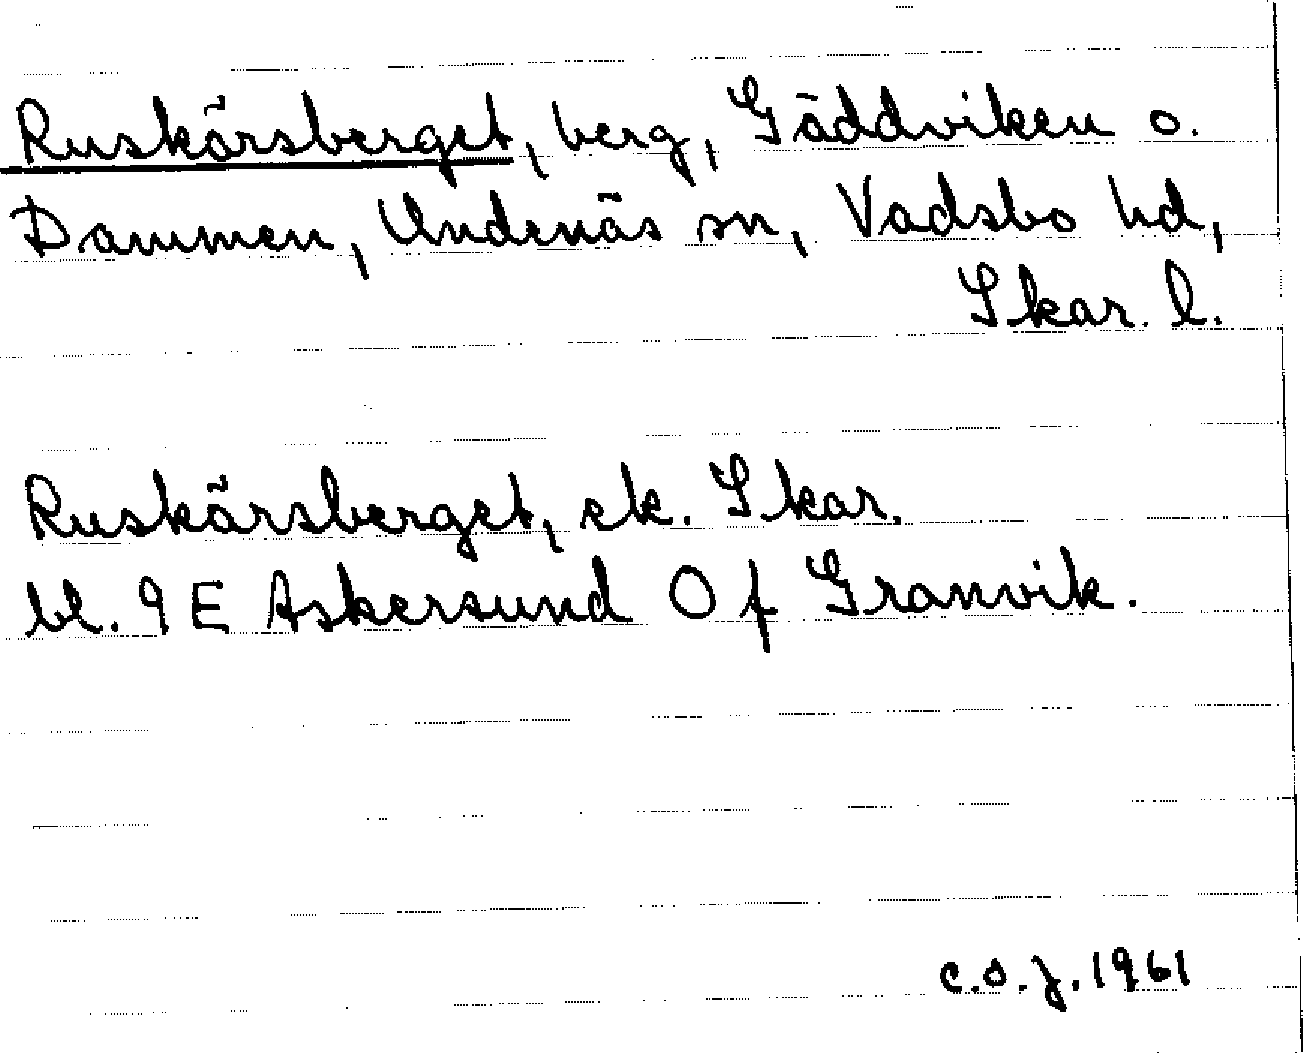 Ruskärsberget, berg, Gäddviken o.
Dammen, Undenäs sn, Vadsbo hd,
Skar. l.
Ruskärsberget, ek. Skar.
bl. 9E Askersund O f Granvik.
c.o.j. 1961